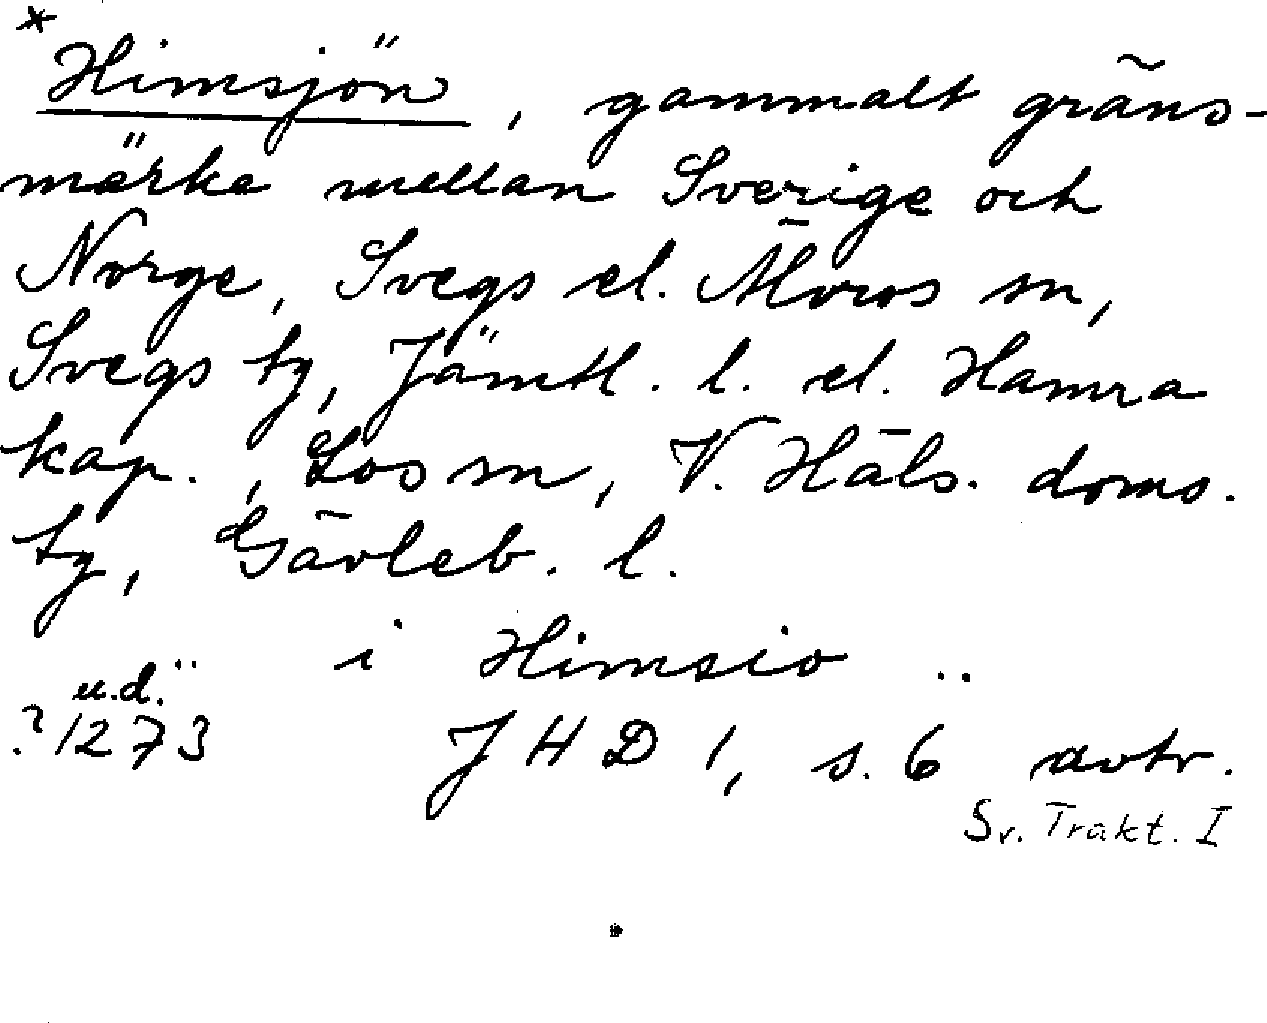 *
Himsjön, gammalt gräns-
märke mellan Sverige och
Norge, Svegs el. Älvros sn,
Svegs tg, Jämtl. l. el. Hamra
kap., Los sn, V. Häls. doms.
tg, Gävleb. l.
i Himsio ..
u.d.
?1273 JHD 1, s. 6 avtr.
Sv. Trakt. I